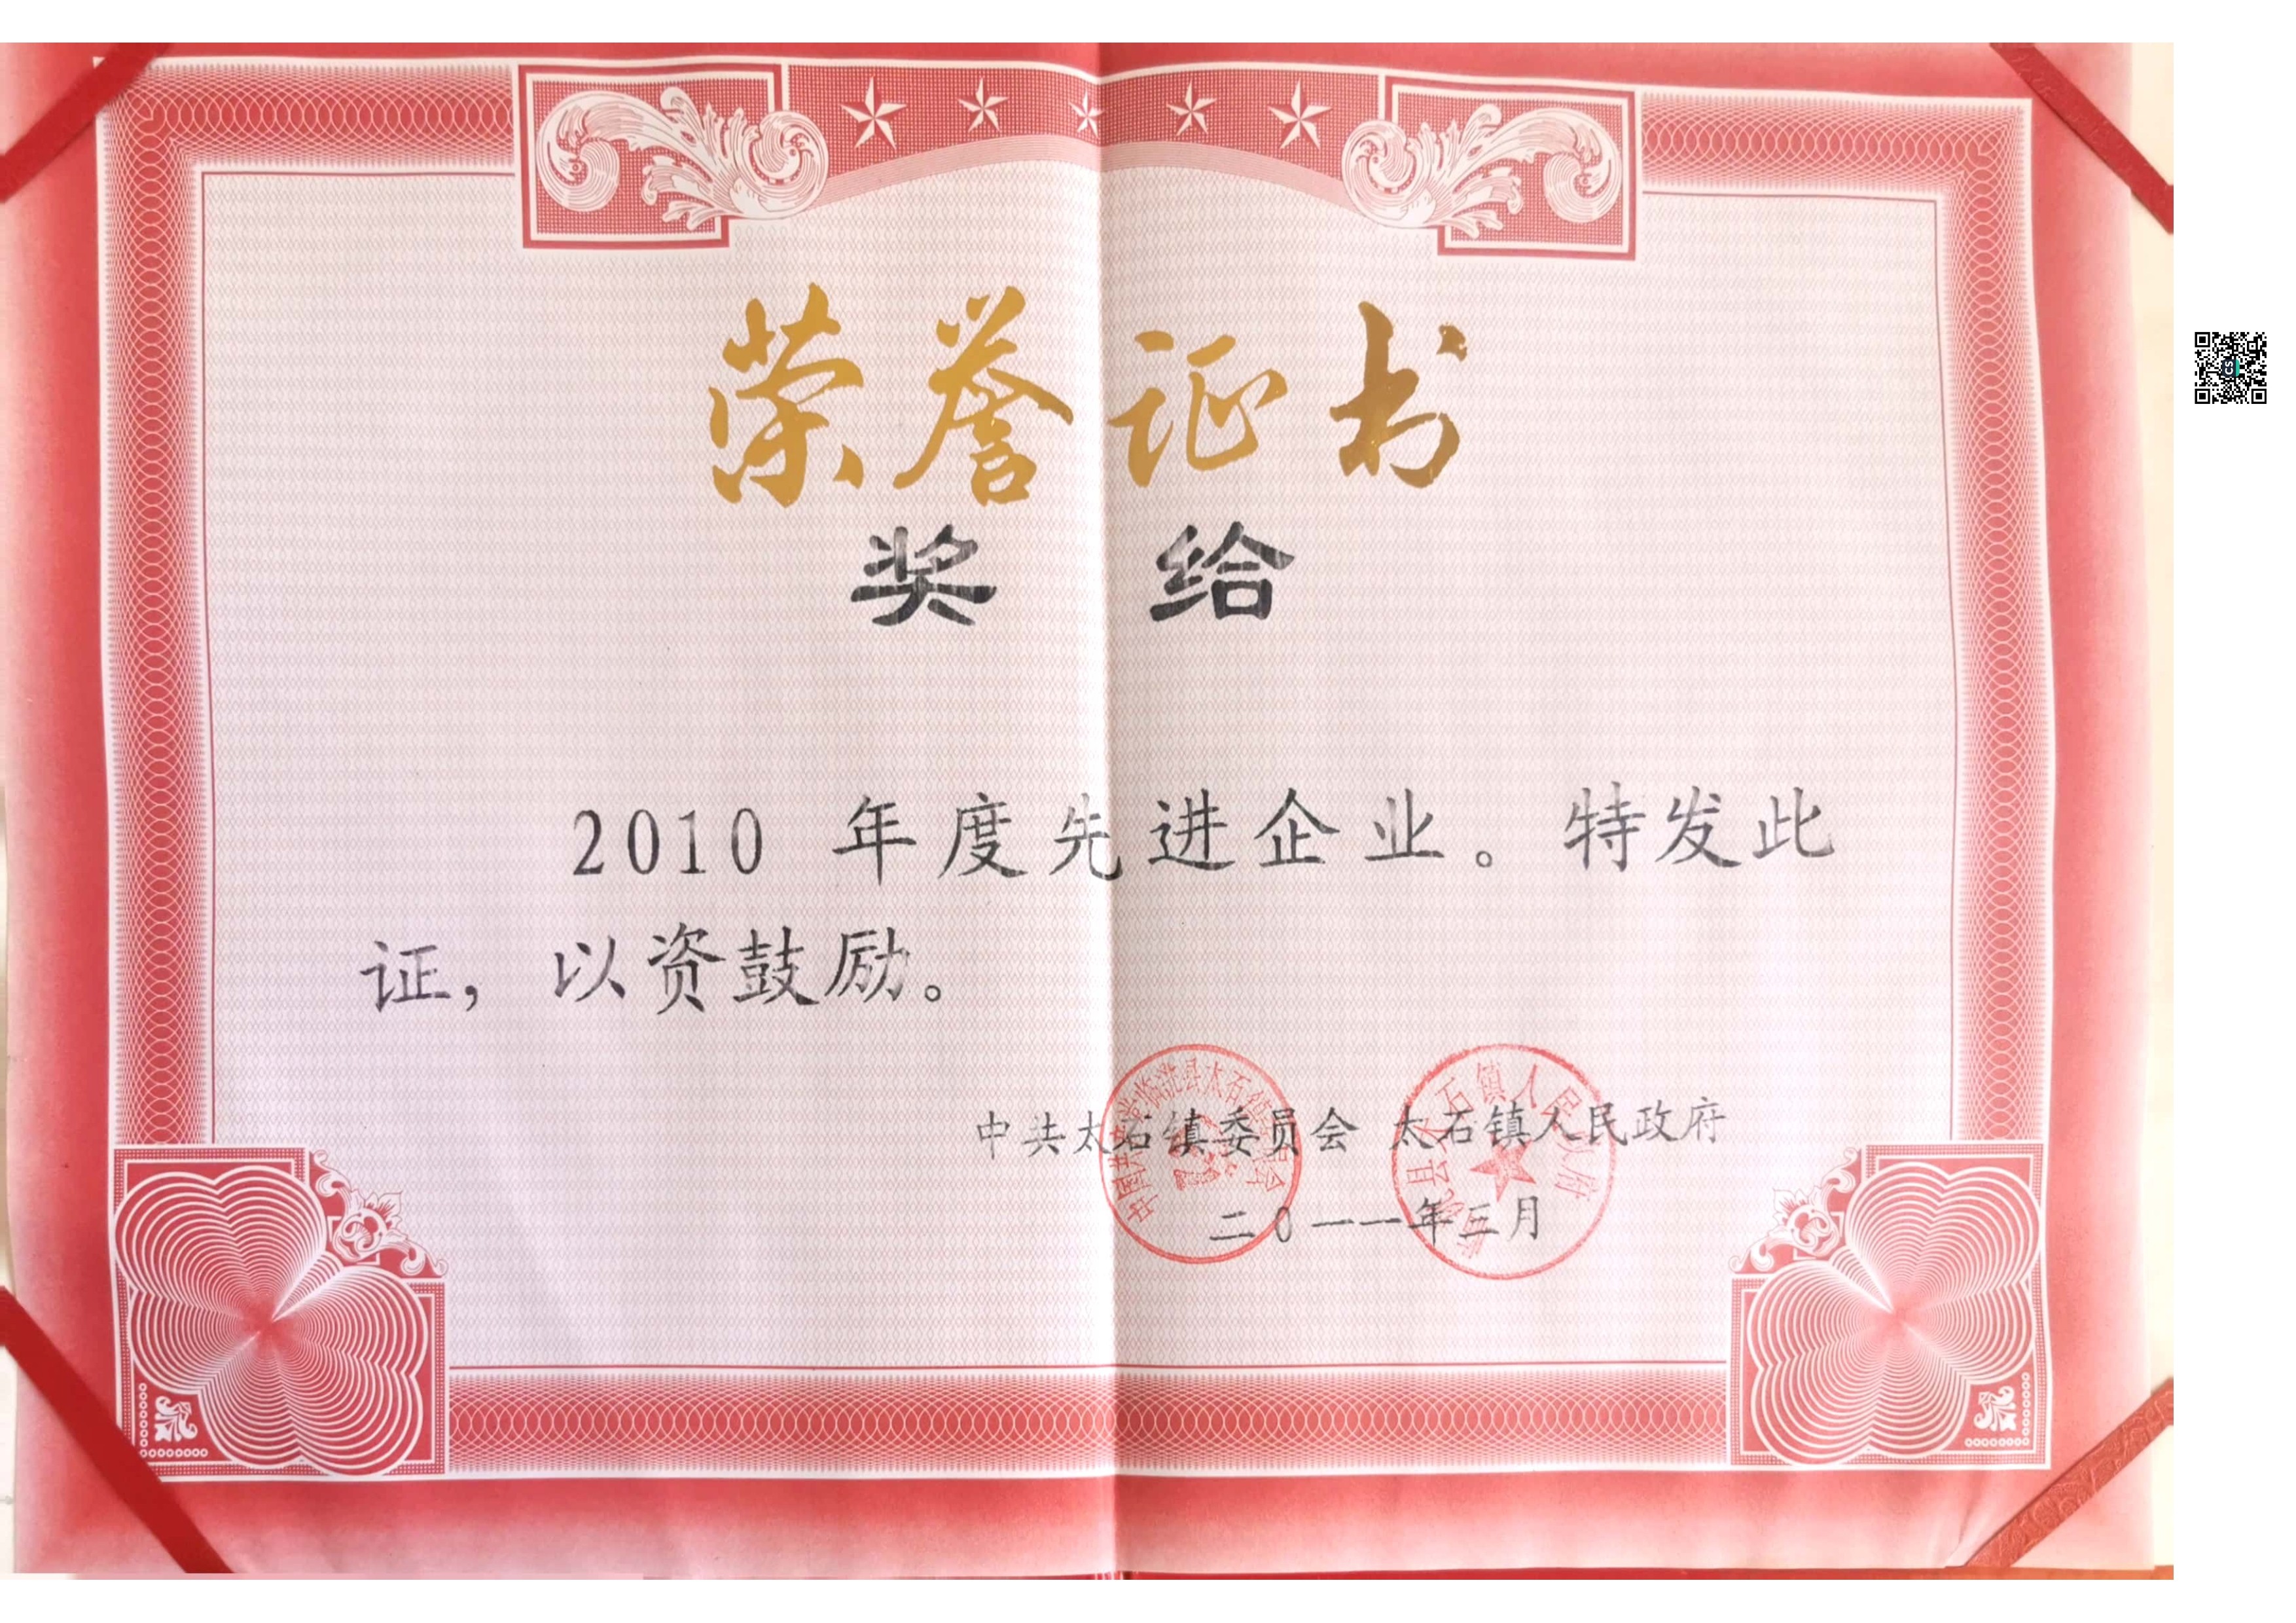 荣誉证书
奖 给
2010 年度先进企业。特发此
证，以资鼓励。
中共太石镇委员会 太石镇人民政府
二0一一年三月